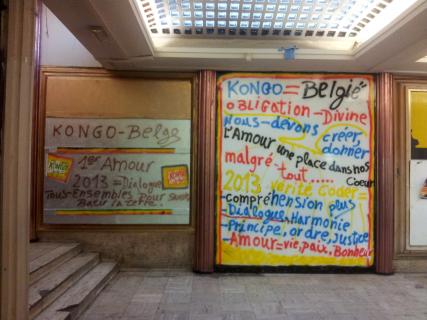 KONGO-Belge
KONGO
1er Amour
2013 = Dialogue
Tous-Ensembles Pour
Batir la terre.
KONGO = België
OBLIGATION-Divine
Nous-devons créer,
donner
l'Amour une place dans nos
Coeur
malgré-tout.....
2013 verité Coder=
-compréhension plus
-Dialogue, Harmonie
-Principe, ordre, Justice
-Amour=vie, paix, Bonheur